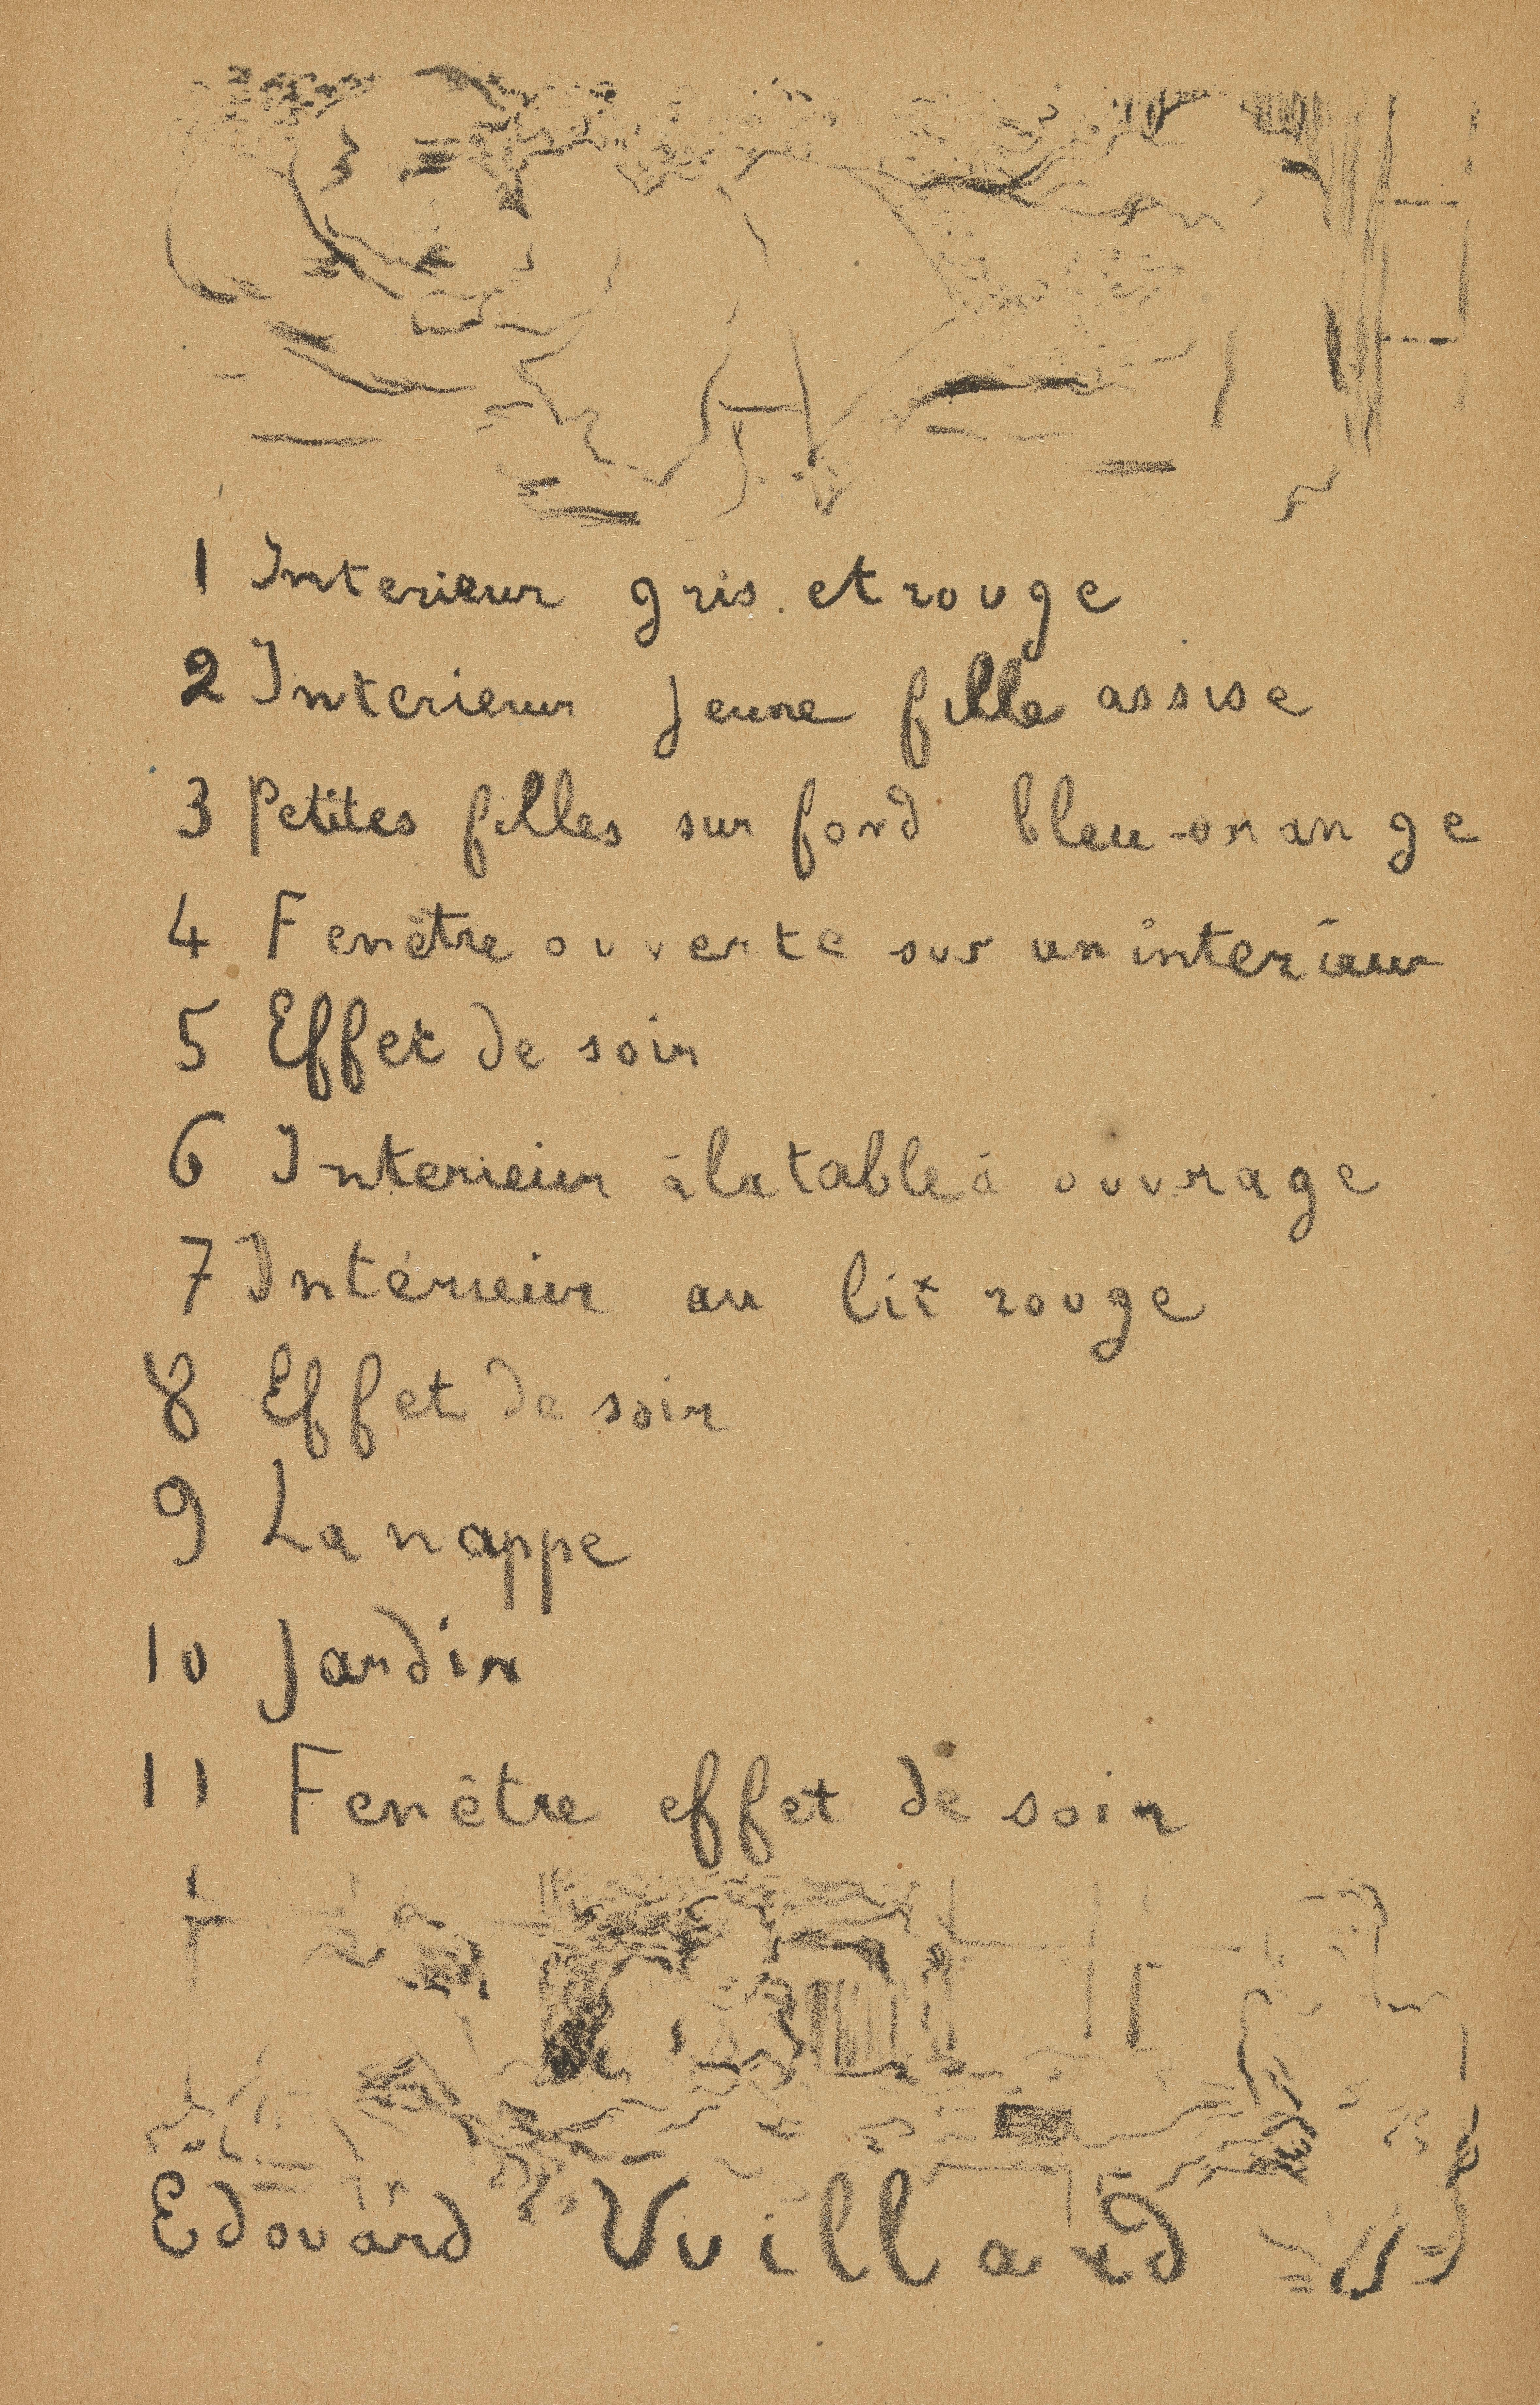 1 Interieur gris et rouge
2 Interieur jeune fille assise
3 Petites filles sur fond bleu-orange
4 Fenêtre ouverte sur un interieur
5 Effet de soir
6 Interieur à la table à ouvrage
7 Intérieur au lit rouge
8 Effet de soir
9 La nappe
10 Jardin
11 Fenêtre effet de soir
Edouard Vuillard